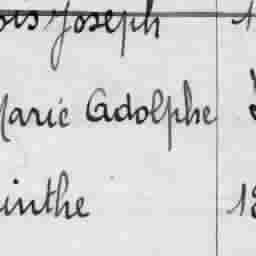 ois Joseph 1
Marie Adolphe
inthe 18